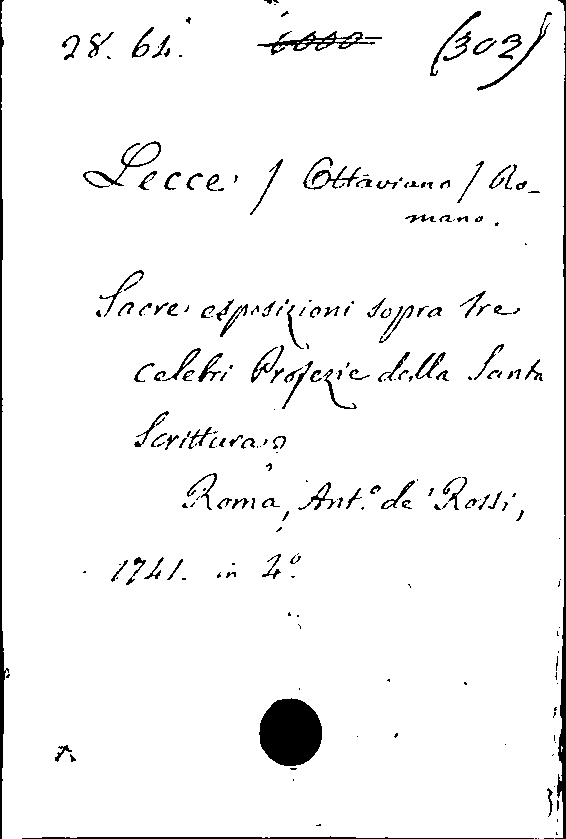 28. 64. 6000 (302)
Lecce / Ottaviano / Ro-
mano.
Sacre esposizioni sopra tre
celebri Profezie della Santa
Scrittura
Roma, Ant.º de' Rossi,
1741. in 4º.